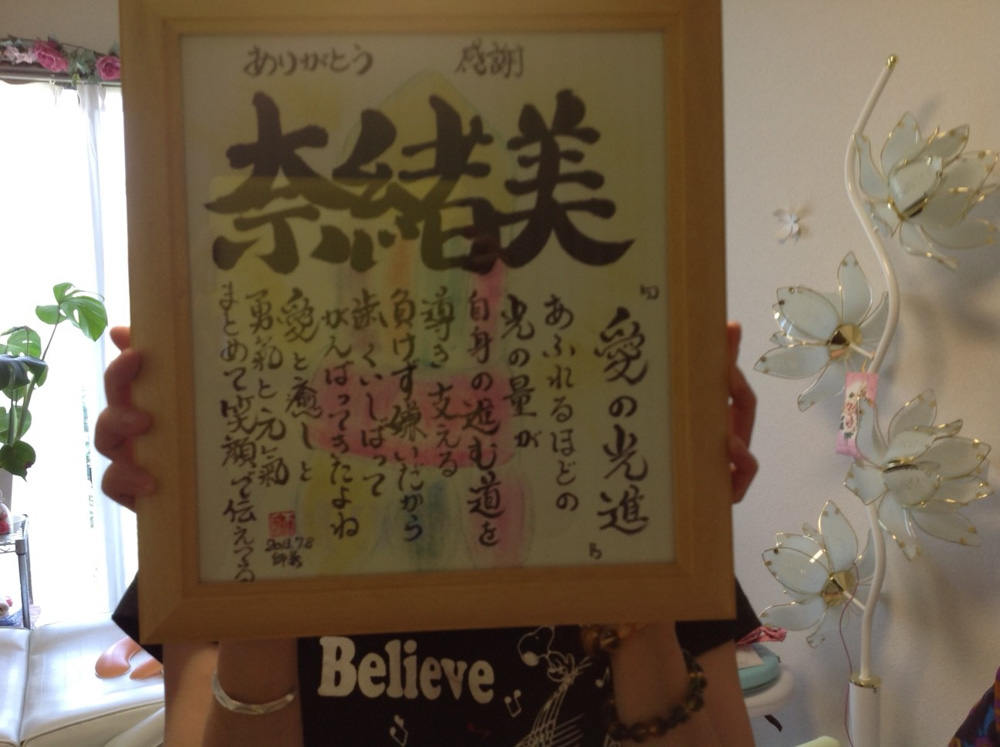 ありがとう 感謝
奈緒美
『愛の光進』
あふれるほどの
光の量が
自身の進む道を
導き支える
負けず嫌いだから
歯くいしばって
がんばってきたよね
愛と癒しと
勇氣と元氣
まとめて笑顔で伝えてる
Believe